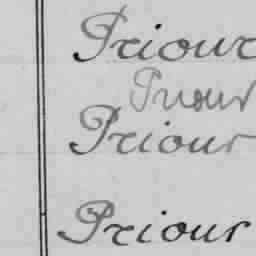 Priour
Priour
Priour
Priour